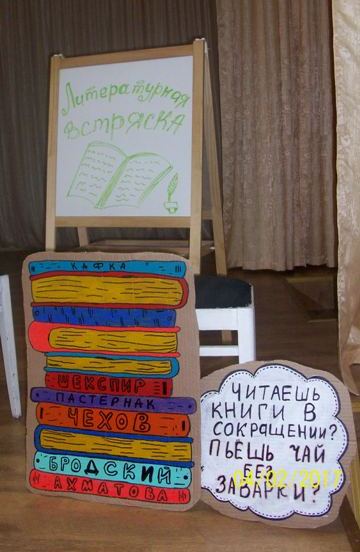 Литературная
встряска
КАФКА
ШЕКСПИР
ПАСТЕРНАК
ЧЕХОВ
БРОДСКИЙ
АХМАТОВА
ЧИТАЕШЬ
КНИГИ В
СОКРАЩЕНИИ?
ПЬЁШЬ ЧАЙ
БЕЗ
ЗАВАРКИ?
04/02/2017